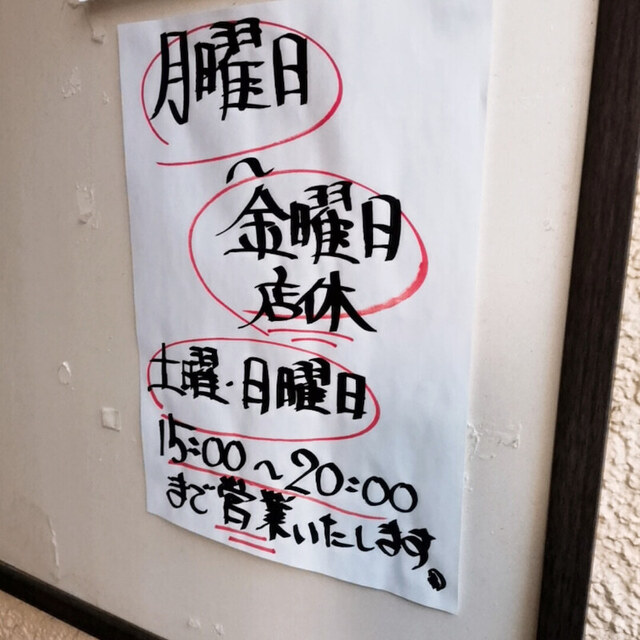 月曜日
〜
金曜日
店休
土曜・日曜日
15:00〜20:00
まで営業いたします。